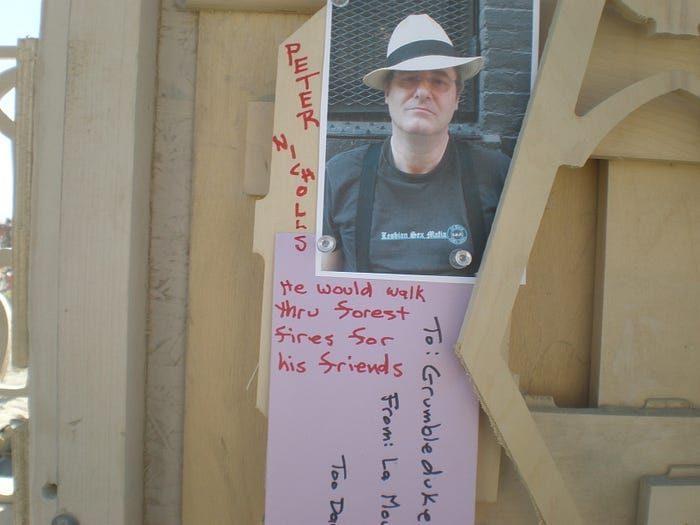 PETER
NICHOLLS
Lesbian Sex Mafia
He would walk
thru forest
fires for
his friends
To: Grumbleduke
From: La Mou
Too Da